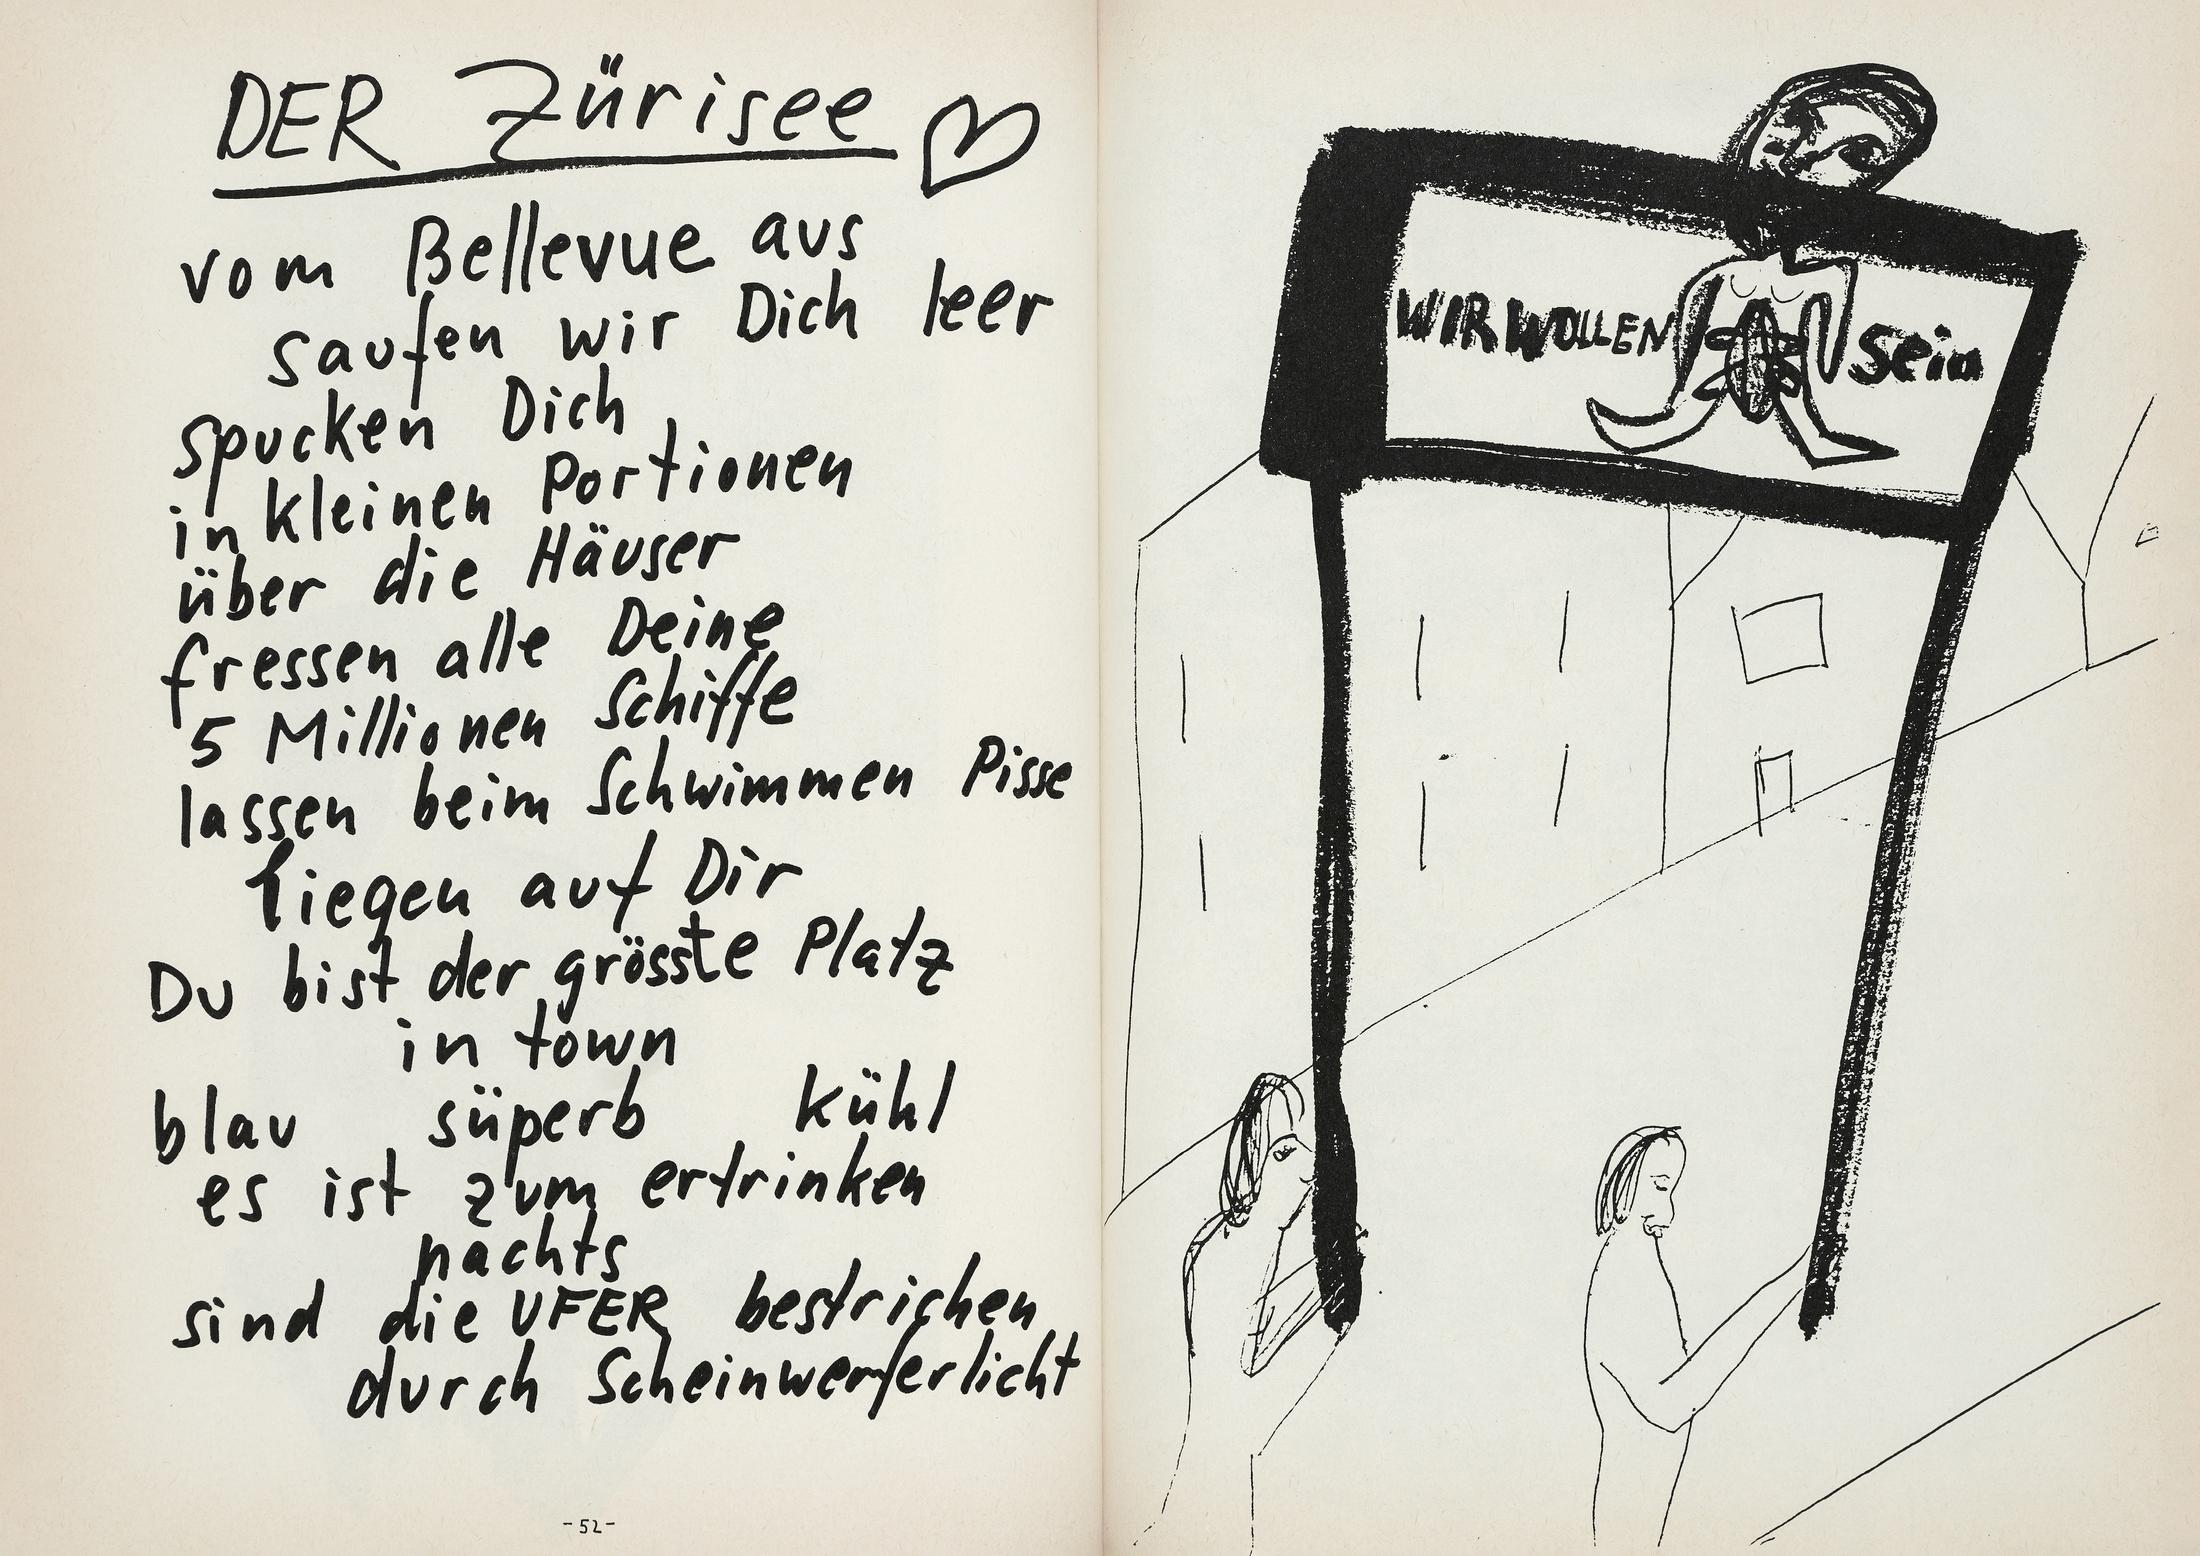 DER Zürisee
vom Bellevue aus
saufen wir Dich leer
spucken Dich
in kleinen Portionen
über die Häuser
fressen alle Deine
5 Millionen Schiffe
lassen beim Schwimmen Pisse
liegen auf Dir
Du bist der grösste Platz
in town
blau süperb kühl
es ist zum ertrinken
nachts
sind die UFER bestrichen
durch Scheinwerferlicht
-52-
WIR WOLLEN sein